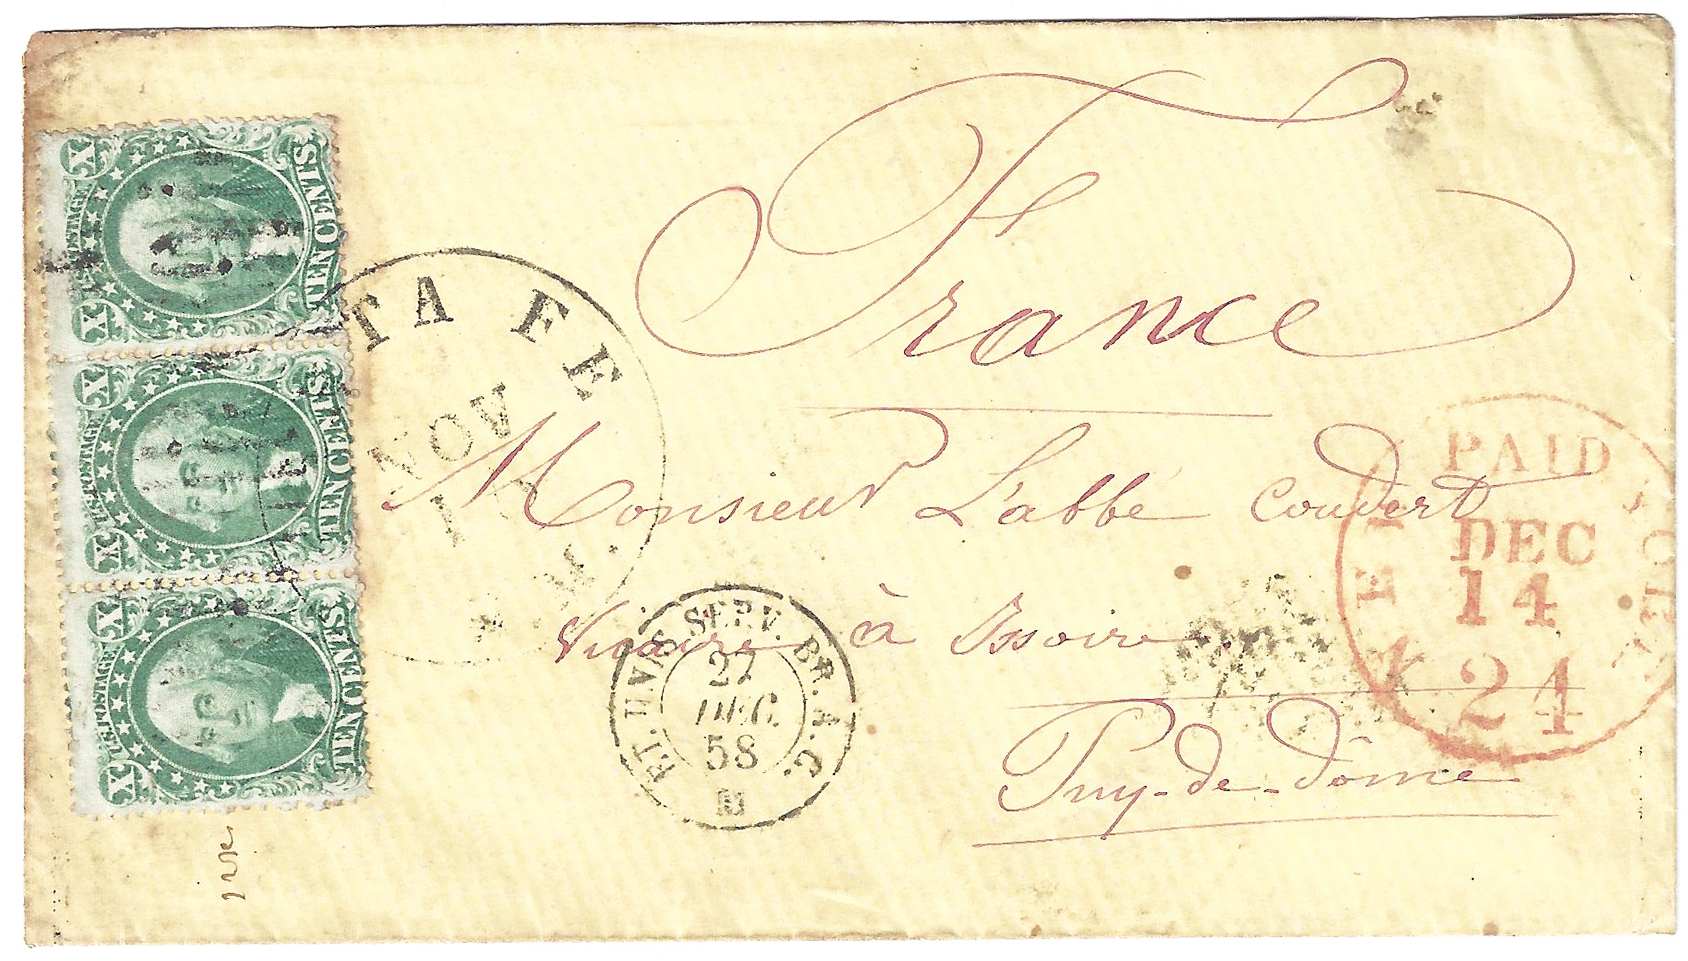 X U.S. POSTAGE X
TEN CENTS
X U.S. POSTAGE X
TEN CENTS
X U.S. POSTAGE X
TEN CENTS
TA FE
NOV
1
M.
France
Monsieur L'abbé Couvert
Vicaire à Issoire.
Puy-de-dôme
ET. UNIS SERV. BR. A.C.
27
DEC.
58
PAID
DEC
14
24